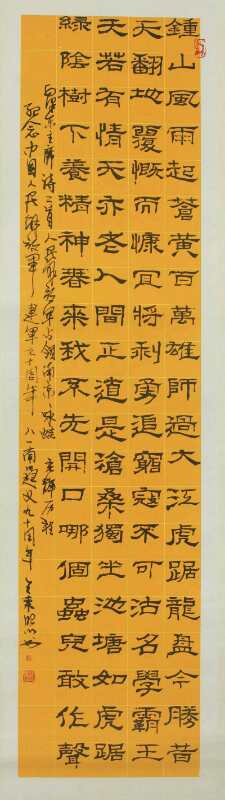 鍾山風雨起蒼黃百萬雄師過大江虎踞龍盤今勝昔
天翻地覆慨而慷宜將剩勇追窮寇不可沽名學霸王
天若有情天亦老人間正道是滄桑獨坐池塘如虎踞
綠陰樹下養精神春來我不先開口哪個蟲兒敢作聲
毛澤東主席詩二首人民解放軍占領南京 咏蛙
紀念中國人民解放軍建軍九十周年 八一南昌起义九十周年